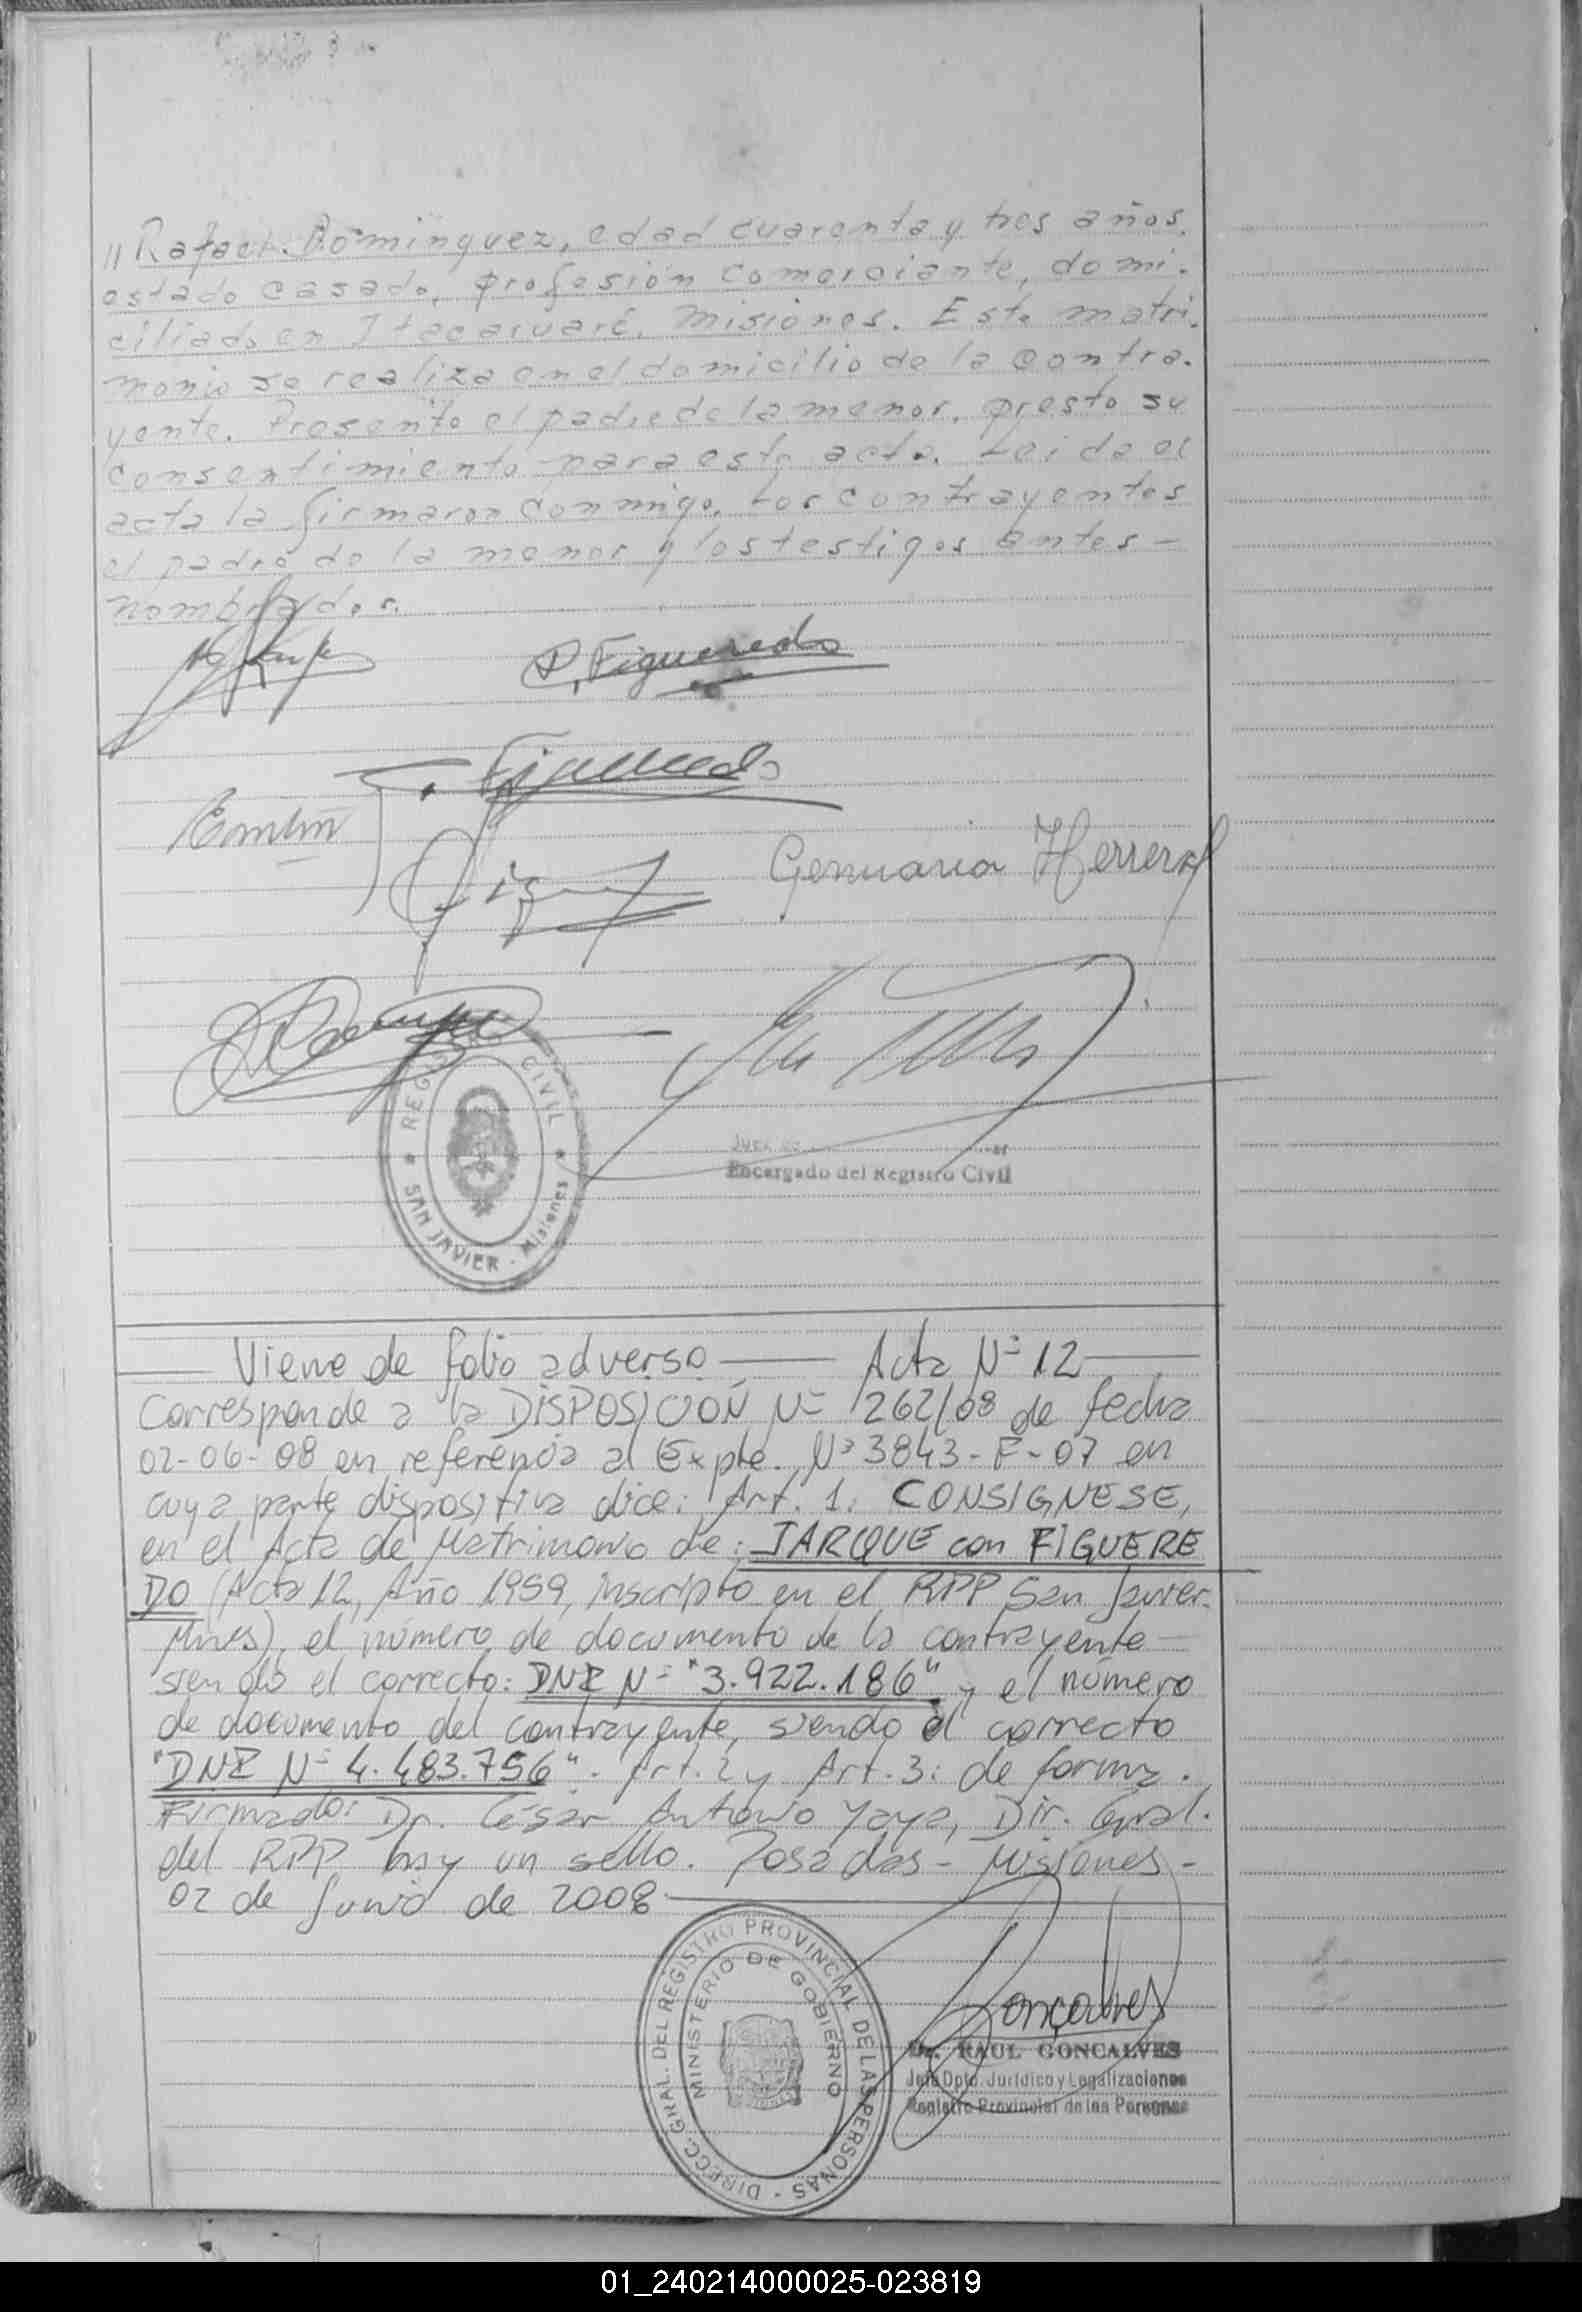 // Rafael. Dominguez, edad cuarenta y tres años,
estado casado, profesión comerciante, domi-
ciliado en Itacaruaré, Misiones. Este matri-
monio se realiza en el domicilio de la contra-
yente. Presente el padre de la menor, presto su
consentimiento para este acto. Leida el
acta la firmaron conmigo, los contrayentes
el padre de la menor y los testigos antes-
nombrados.
P. Figueredo
Figueredo
Genuaria Herrera
REGISTRO CIVIL
SAN JAVIER - Misiones
Encargado del Registro Civil
Viene de folio adverso Acta Nº 12
Corresponde a la DISPOSICIÓN Nº 1262/08 de fecha
02-06-08 en referencia al Expte. Nº 3843-F-07 en
cuya parte dispositiva dice: Art. 1: CONSIGNESE,
en el Acta de Matrimonio de: JARQUE con FIGUERE
DO (Acta 12, Año 1959, inscripto en el RPP San Javier-
Mnes), el número de documento de la contrayente—
siendo el correcto: DNI Nº "3.922.186" y el número
de documento del contrayente, siendo el correcto
"DNI Nº 4.483.756". Art. 2 y Art. 3: de forma.
Firmado: Dr. César Antonio Yaya, Dir. Gral.
del RPP, hay un sello. Posadas - Misiones -
02 de Junio de 2008.
DIRECC. GRAL. DEL REGISTRO PROVINCIAL DE LAS PERSONAS -
MINISTERIO DE GOBIERNO
Goncalves
Dr. RAUL GONCALVES
Jefe Dpto. Jurídico y Legalizaciones
Registro Provincial de las Personas
01_240214000025-023819